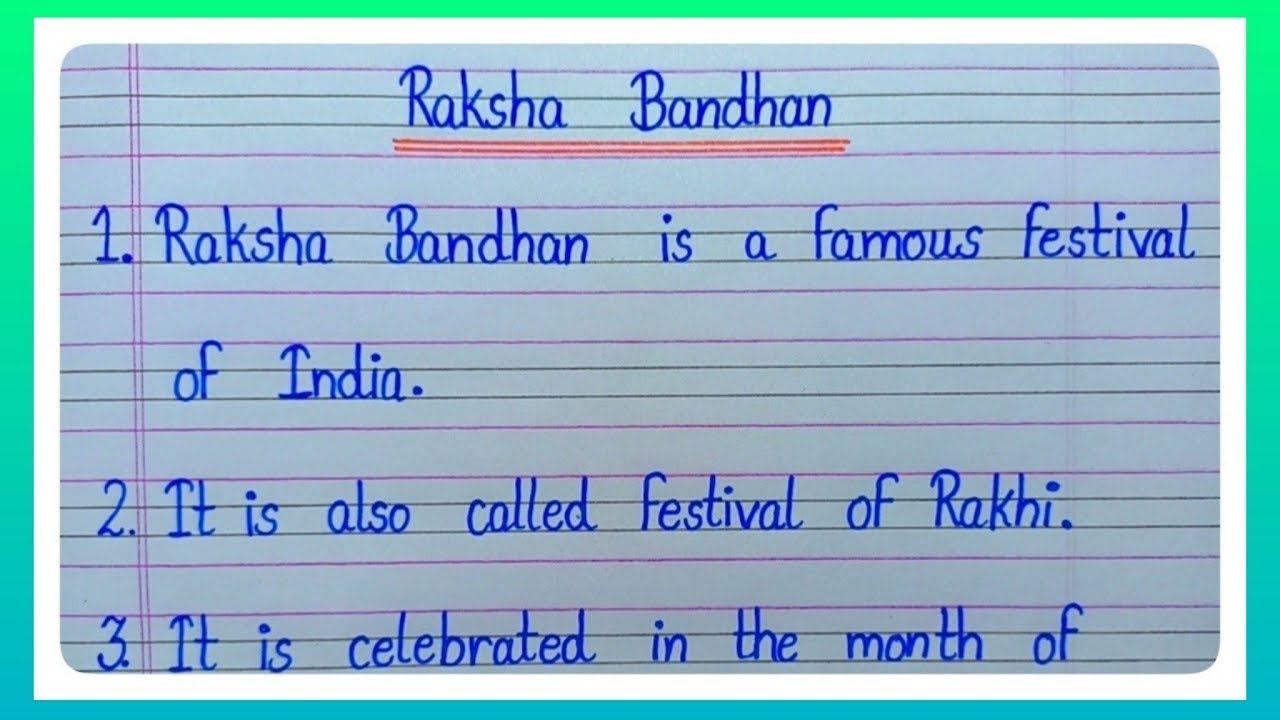 Raksha Bandhan
1. Raksha Bandhan is a famous festival
of India.
2. It is also called festival of Rakhi.
3. It is celebrated in the month of